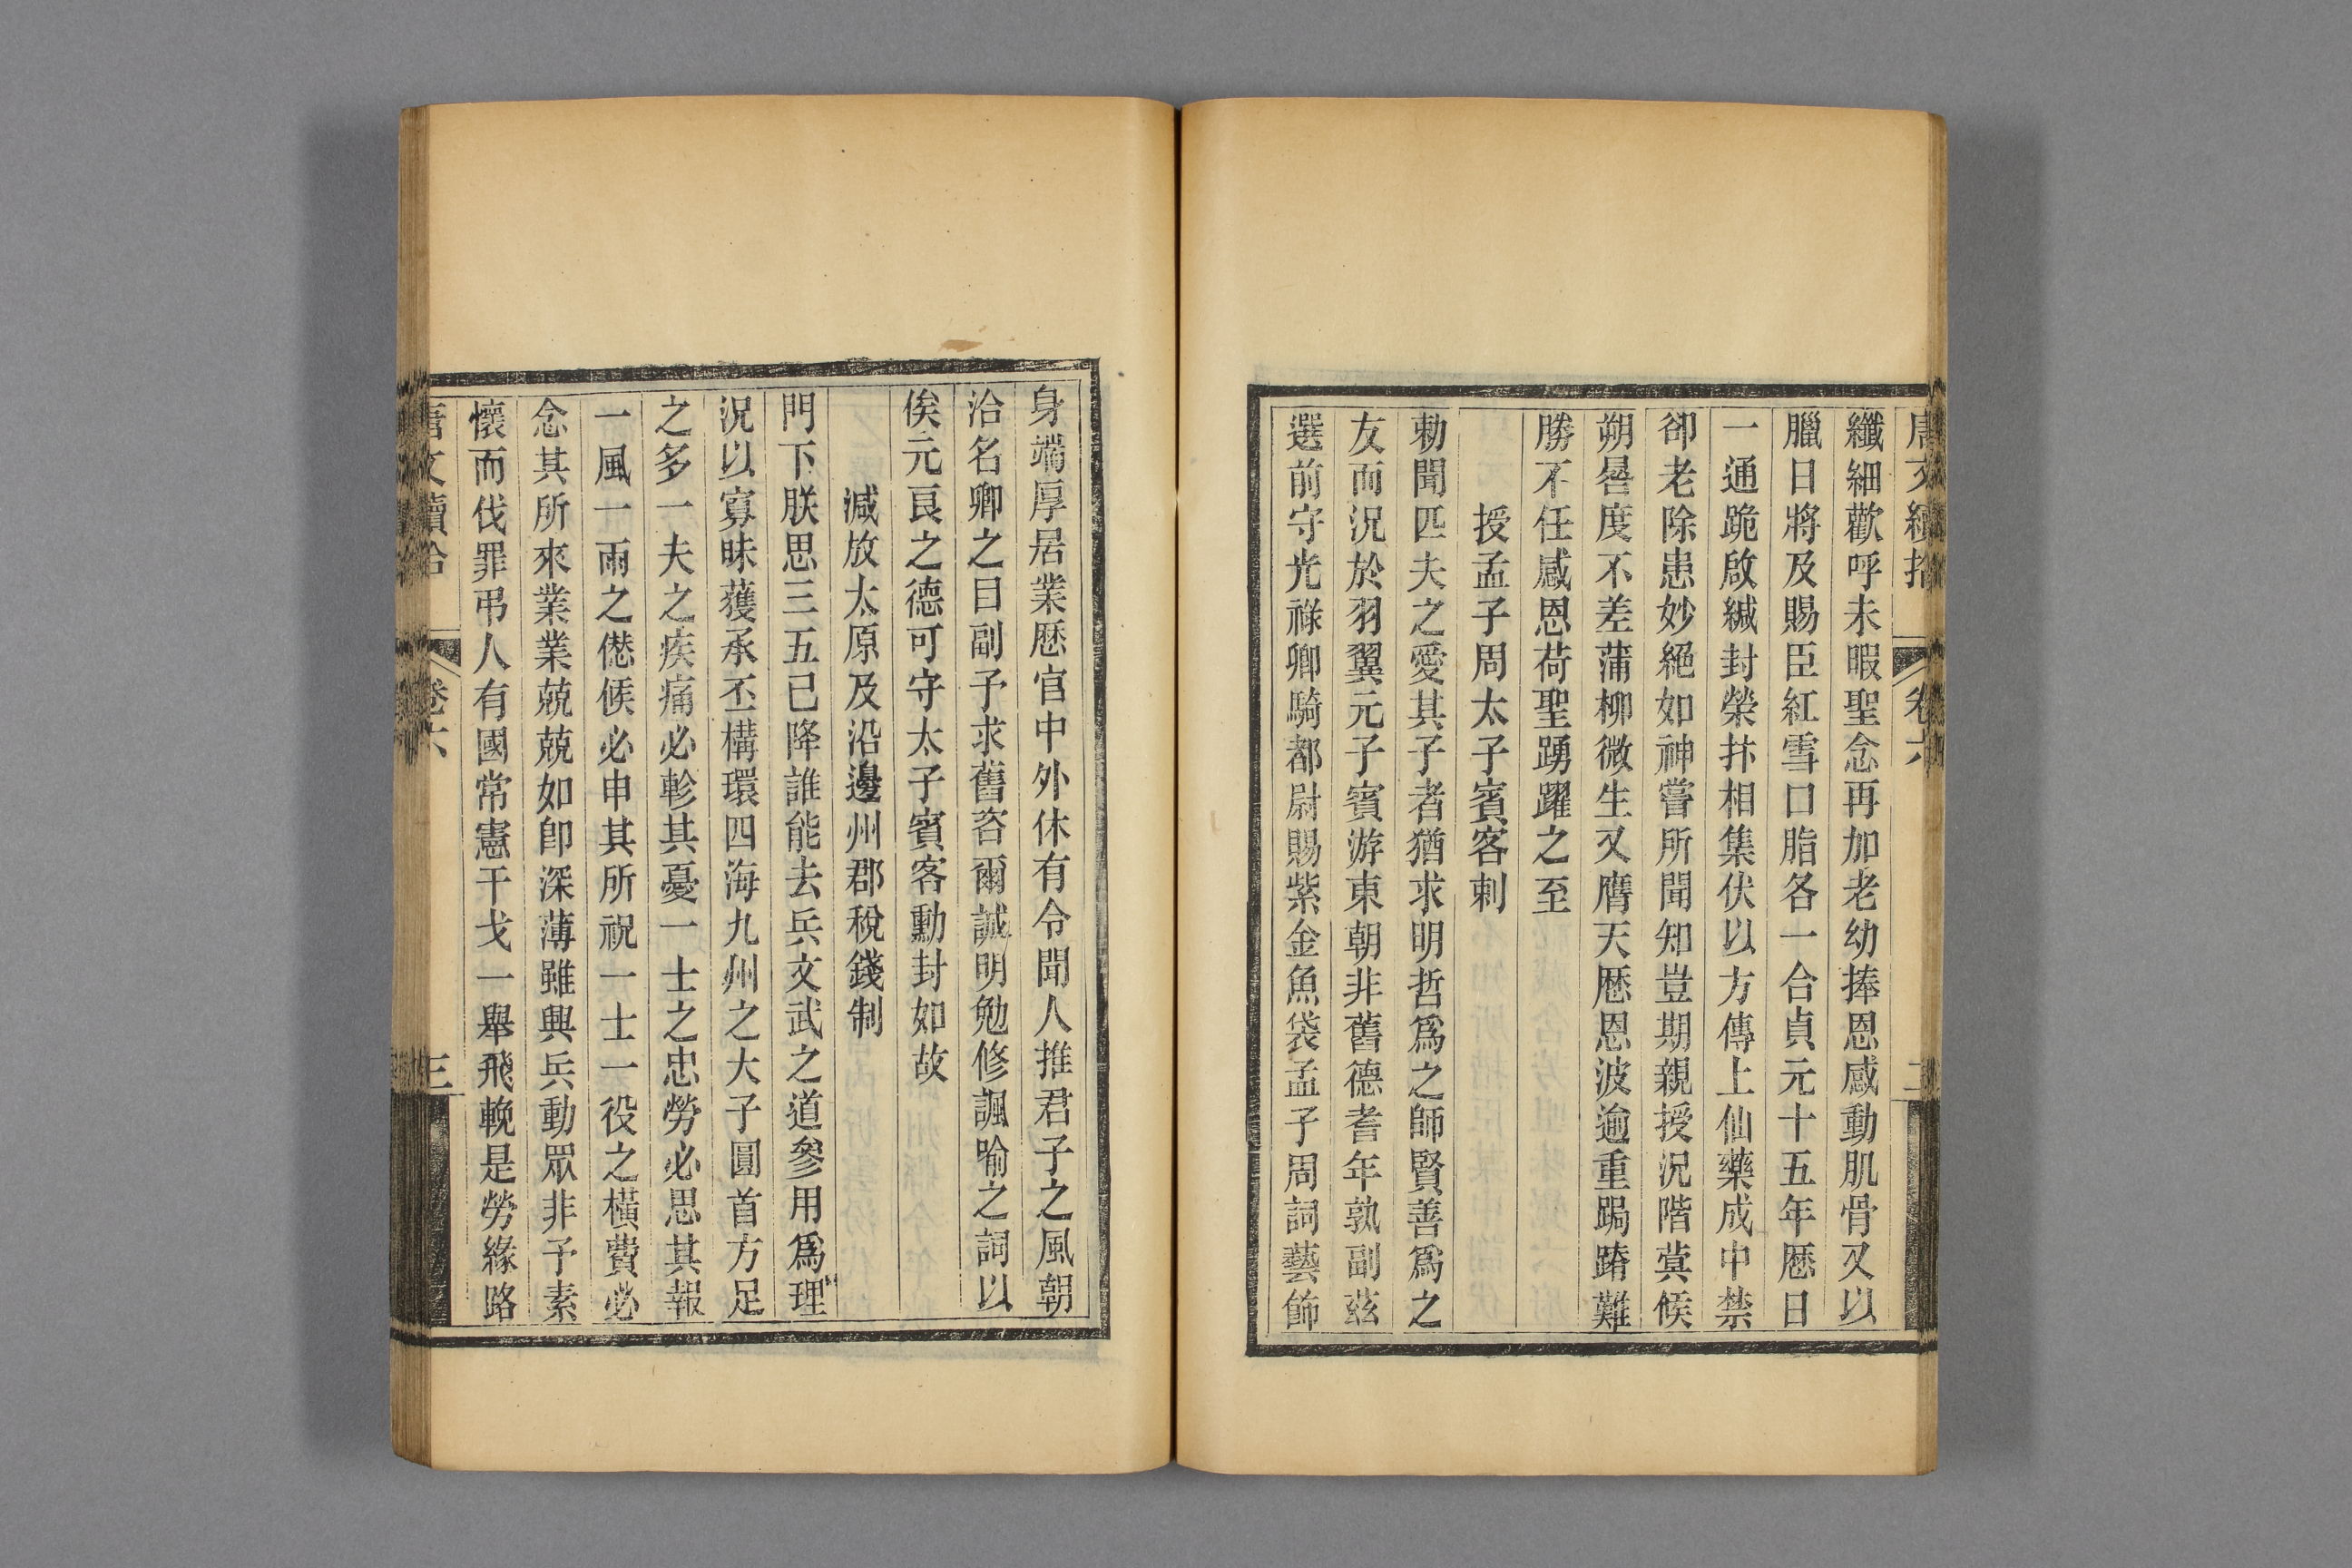 唐文續拾 卷六 二
纖細歡呼未暇聖念再加老幼捧恩感動肌骨又以
臘日將及賜臣紅雪口脂各一合貞元十五年曆日
一通跪啟緘封榮抃相集伏以方傳上仙藥成中禁
卻老除患妙絕如神嘗所聞知豈期親授況階蓂候
朔晷度不差蒲柳微生又膺天曆恩波逾重跼蹐難
勝不任感恩荷聖踴躍之至
授孟子周太子賓客制
勅聞匹夫之愛其子者猶求明哲爲之師賢善爲之
友而況於羽翼元子賓游東朝非舊德耆年孰副茲
選前守光祿卿騎都尉賜紫金魚袋孟子周詞藝飾
身端厚居業歷官中外休有令聞人推君子之風朝
洽名卿之目副予求舊咨爾誠明勉修諷喻之詞以
俟元良之德可守太子賓客勳封如故
減放太原及沿邊州郡稅錢制
門下朕思三五已降誰能去兵文武之道參用爲理
況以寡昧獲承丕構環四海九州之大子圓首方足
之多一夫之疾痛必軫其憂一士之忠勞必思其報
一風一雨之僽候必申其所祝一士一役之橫費必
念其所來業業兢兢如卽深薄雖興兵動眾非予素
懷而伐罪弔人有國常憲干戈一舉飛輓是勞緣路
唐文續拾 卷六 三